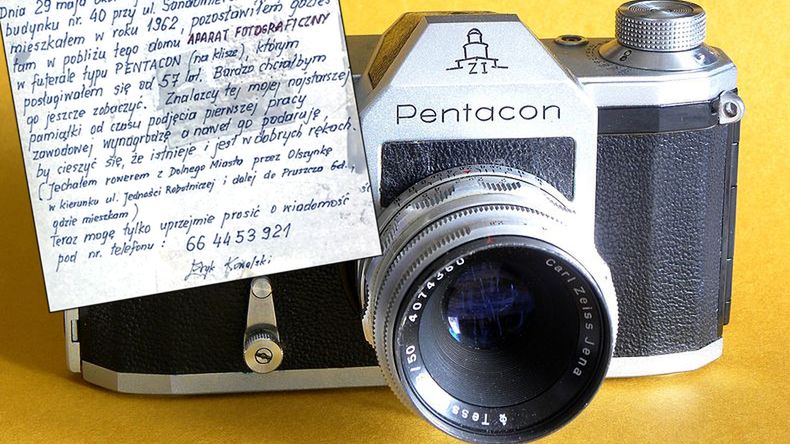 Dnia 29 maja
budynku nr. 40 przy ul.
mieszkałem w roku 1962, pozostawiłem gdzieś
tam w pobliżu tego domu APARAT FOTOGRAFICZNY
w futerale typu PENTACON (na klisze), którym
posługiwałem się od 57 lat. Bardzo chciałbym
go jeszcze zobaczyć. Znalazcy tej mojej najstarszej
pamiątki od czasu podjęcia pierwszej pracy
zawodowej wynagrodzę a nawet go podaruję,
by cieszyć się, że istnieje i jest w dobrych rękach.
(Jechałem rowerem z Dolnego Miasta przez Olszynkę
w kierunku ul. Jedności Robotniczej i dalej do Pruszcza Gd.,
gdzie mieszkam)
Teraz mogę tylko uprzejmie prosić o wiadomość
pod nr. telefonu: 66 4453 921
Kowalski
ZI
Pentacon
8
Carl Zeiss Jena
4074360
/50
Q Tess